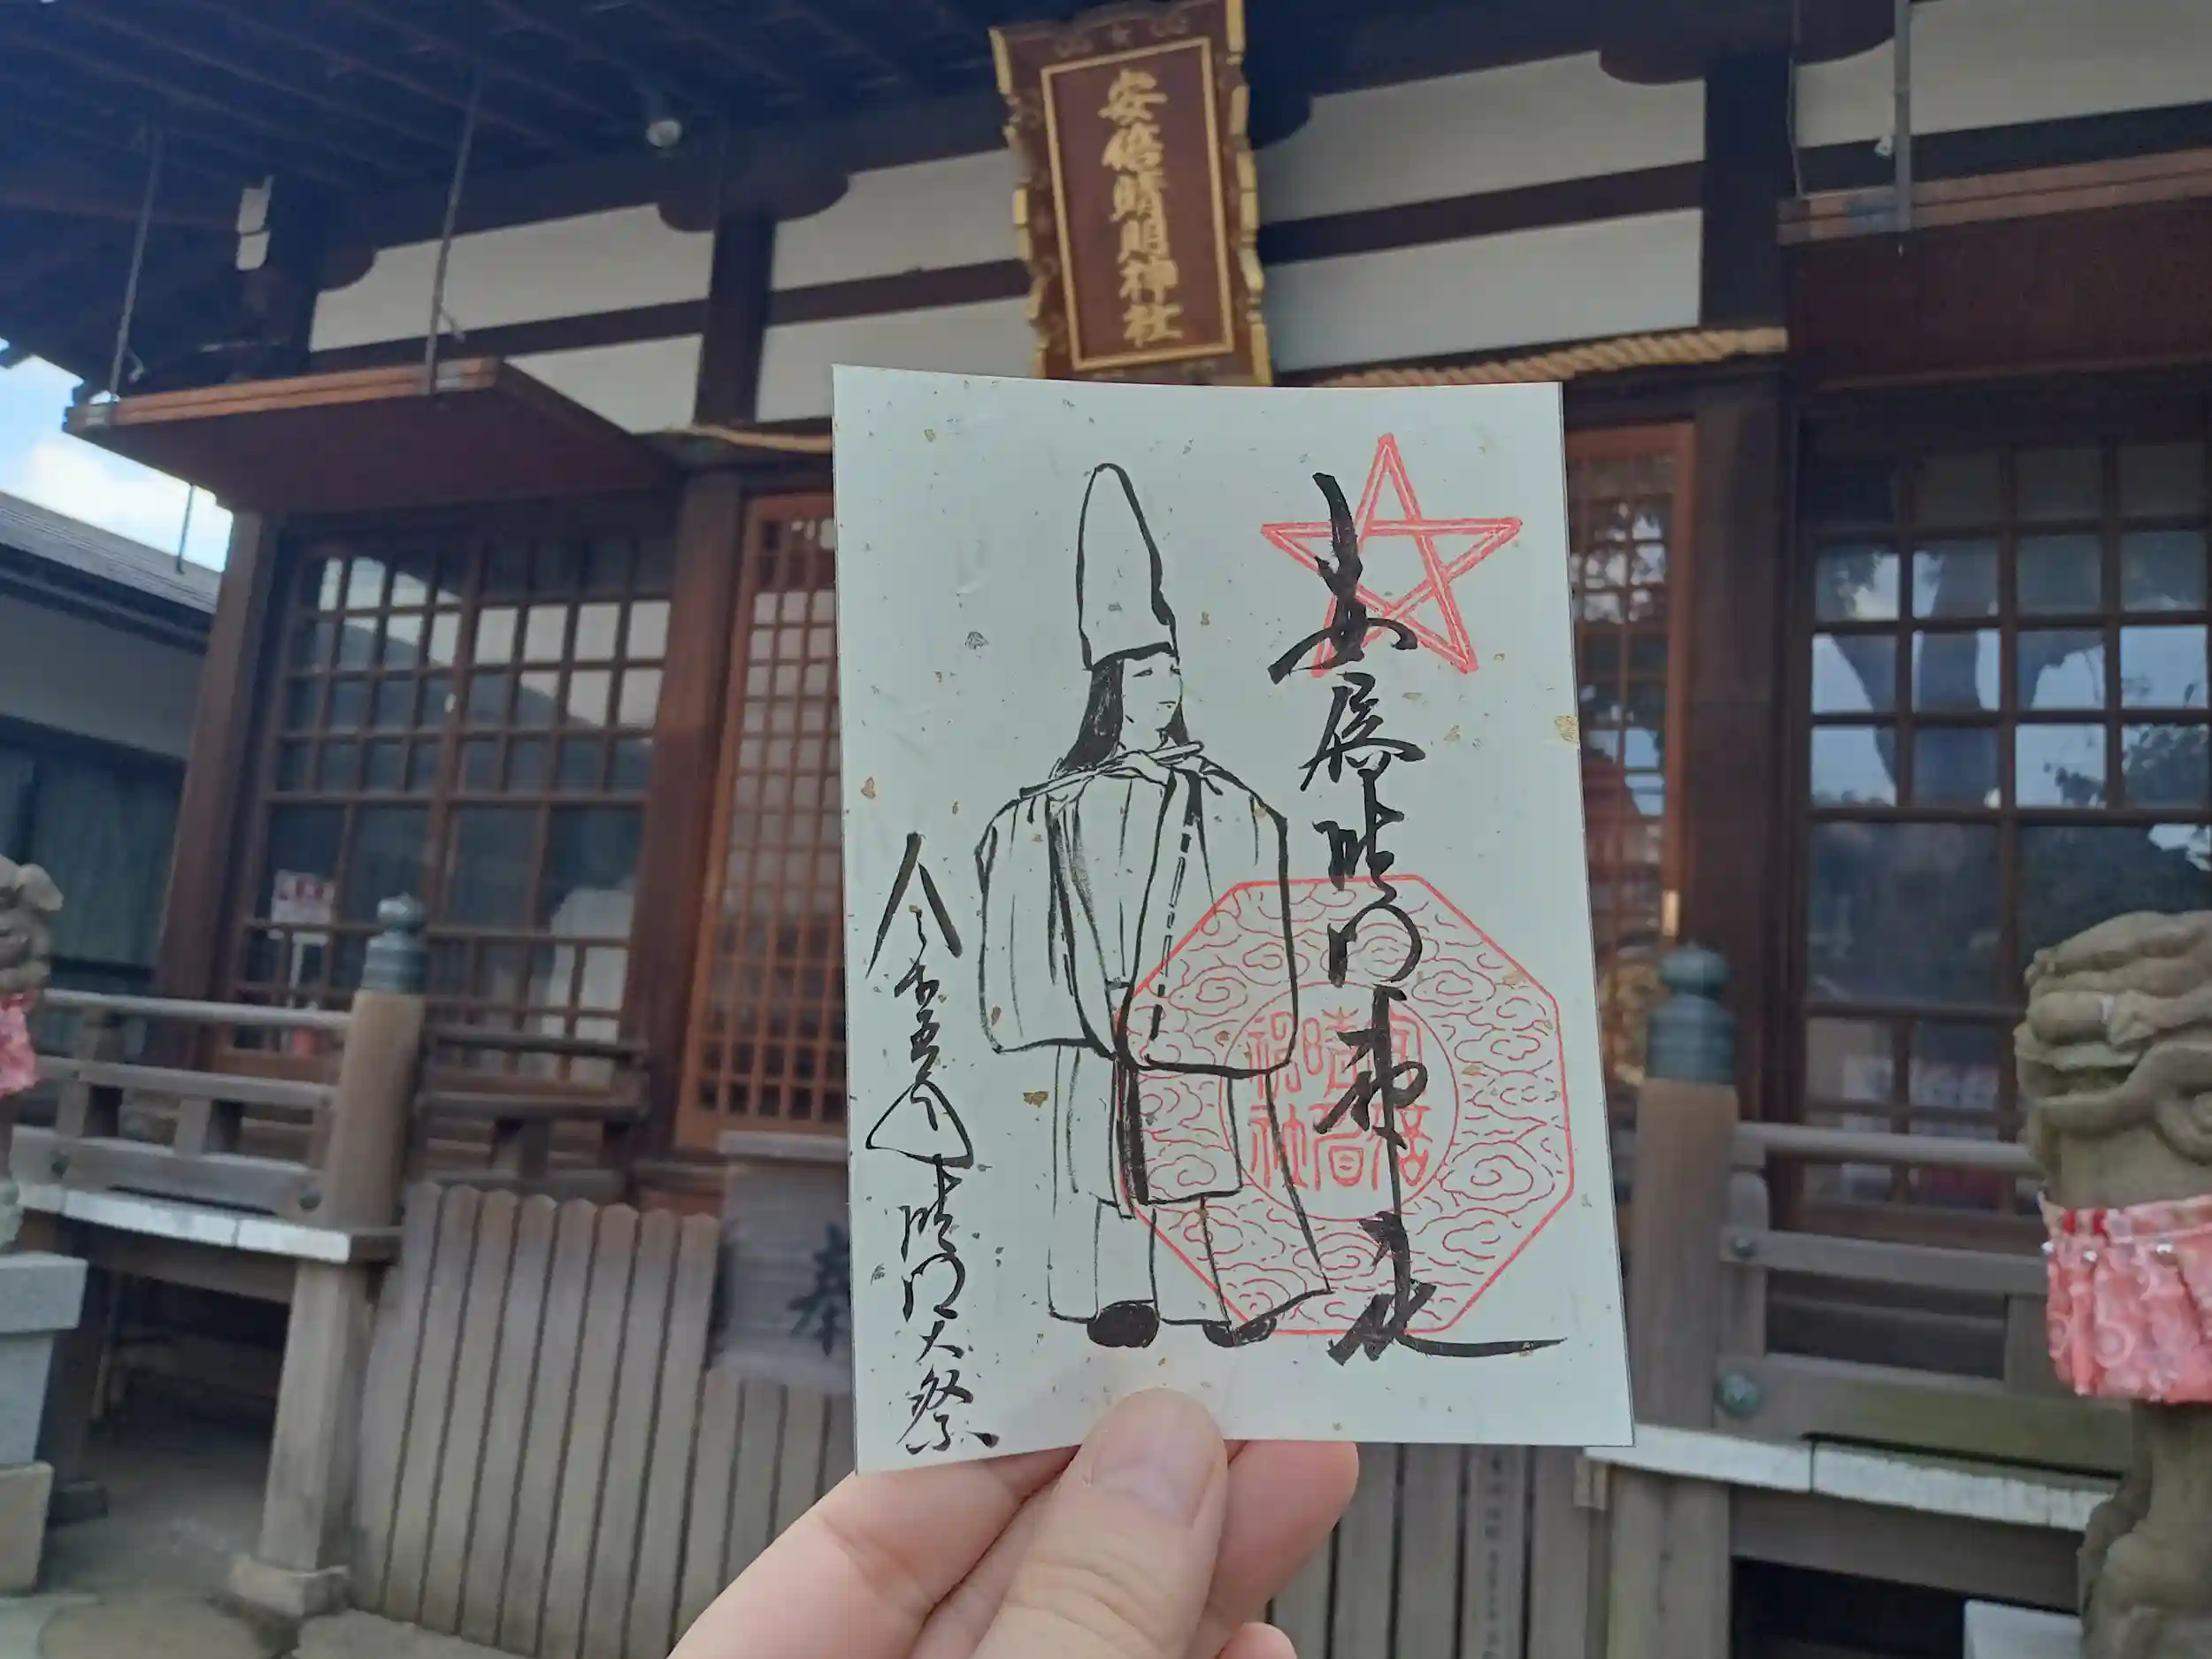 安倍晴明神社
安倍晴明神社
安倍晴明神社
晴明大祭
奉